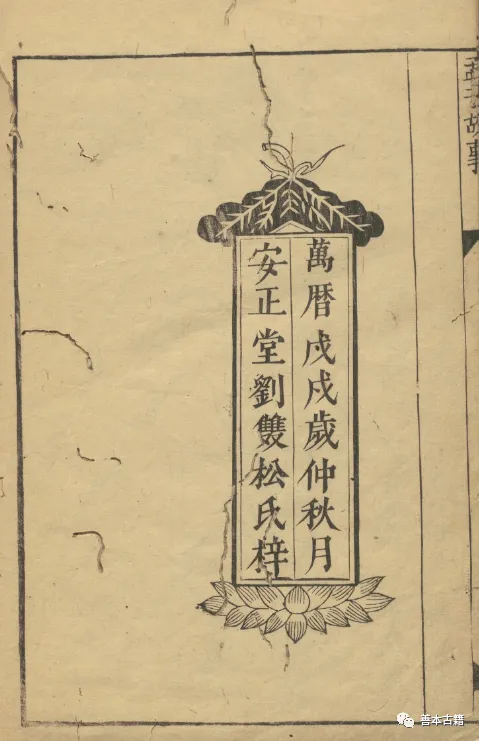 故事
萬曆戊戌歲仲秋月
安正堂劉雙松氏梓
善本古籍